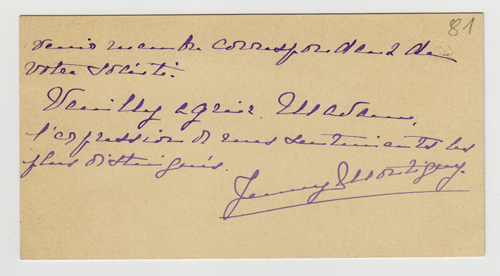 81
membre correspondant de
votre société.
Veuillez agréer, Madame,
l'expression de mes sentiments les
plus distingués.
Jenny Montigny.